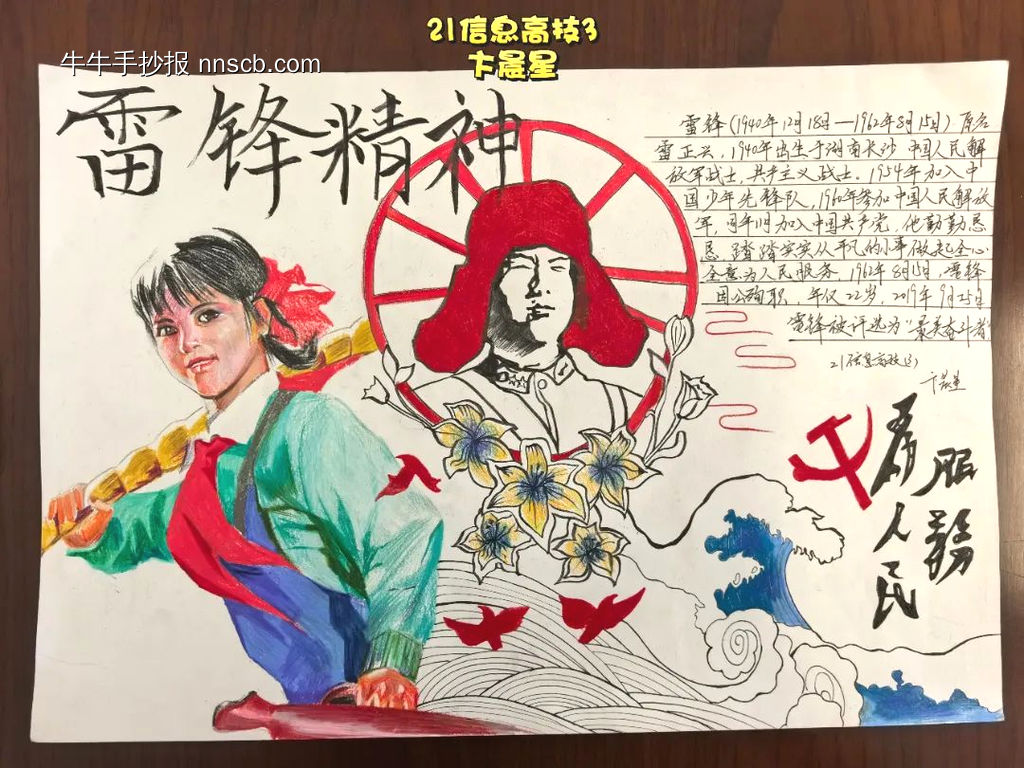 21信息高技3
卞晨星
牛牛手抄报 nnscb.com
雷锋精神
雷锋(1940年12月18日—1962年8月15日)原名
雷正兴,1940年出生于湖南长沙 中国人民解
放军战士,共产主义战士,1954年加入中
国少年先锋队,1960年参加中国人民解放
军,同年11月加入中国共产党,他勤勤恳
恳 踏踏实实从平凡的小事做起全心
全意为人民服务,1962年8月15日,雷锋
因公殉职 年仅22岁,2019年9月25日
雷锋被评选为“最美奋斗者”
21信息高技(3)
卞晨星
为人民
服务